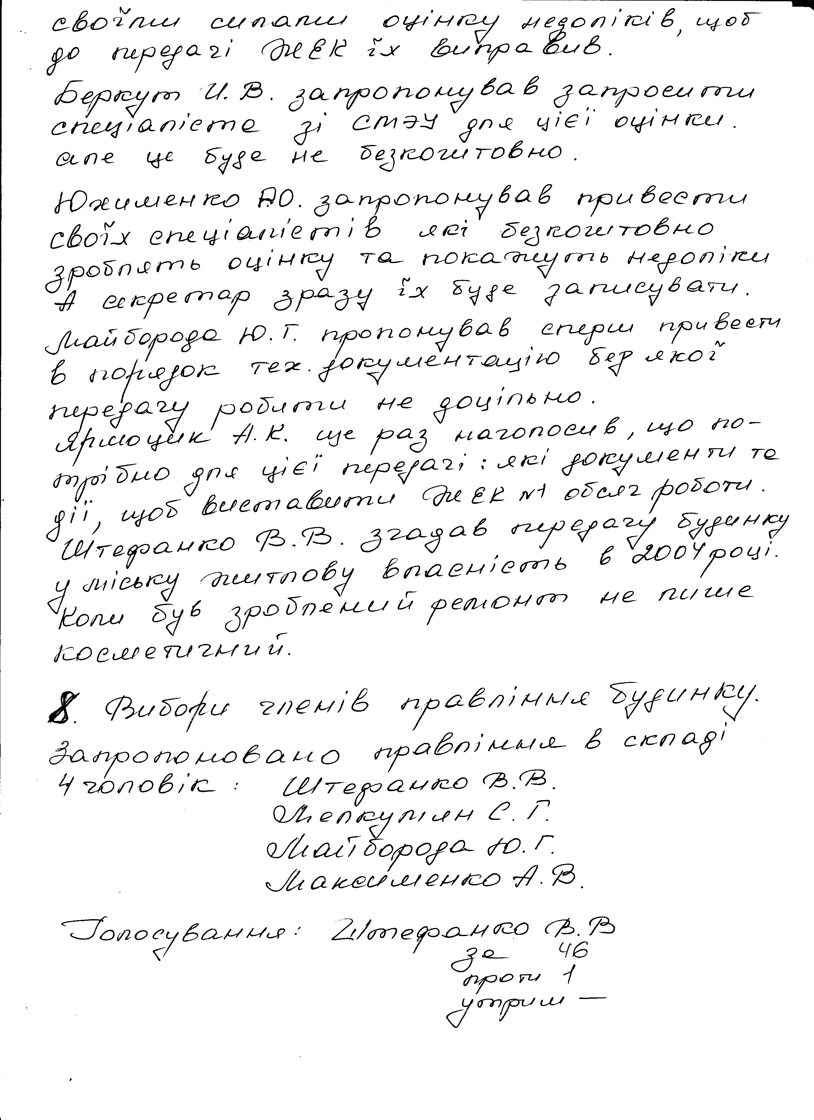 своїми силами оцінку недоліків, щоб
до передачі ЖЕК їх виправив.
Беркут И. В. запропонував запросити
спеціаліста зі СМЭУ для цієї оцінки.
але це буде не безкоштовно.
Юхименко А.О. запропонував привести
своїх спеціалістів які безкоштовно
зроблять оцінку та покажуть недоліки
А секретар зразу їх буде записувати.
Майборода Ю. Г. пропонував сперш привести
в порядок тех. документацію без якої
передачу робити не доцільно.
Ярмоцик А.К. ще раз наголосив, що по-
трібно для цієї передачі: які документи та
дії, щоб виставити ЖЕК №1 обсяг роботи.
Штефанко В.В. згадав передачу будинку
у міську житлову власність в 2004 році.
Коли був зроблений ремонт не лише
косметичний.
8. Вибори членів правління будинку.
Запропоновано правління в складі
4 чоловік: Штефанко В.В.
Мелкумян С. Г.
Майборода Ю. Г.
Максименко А. В.
Голосування: Штефанко В. В
за 46
проти 1
утрим —